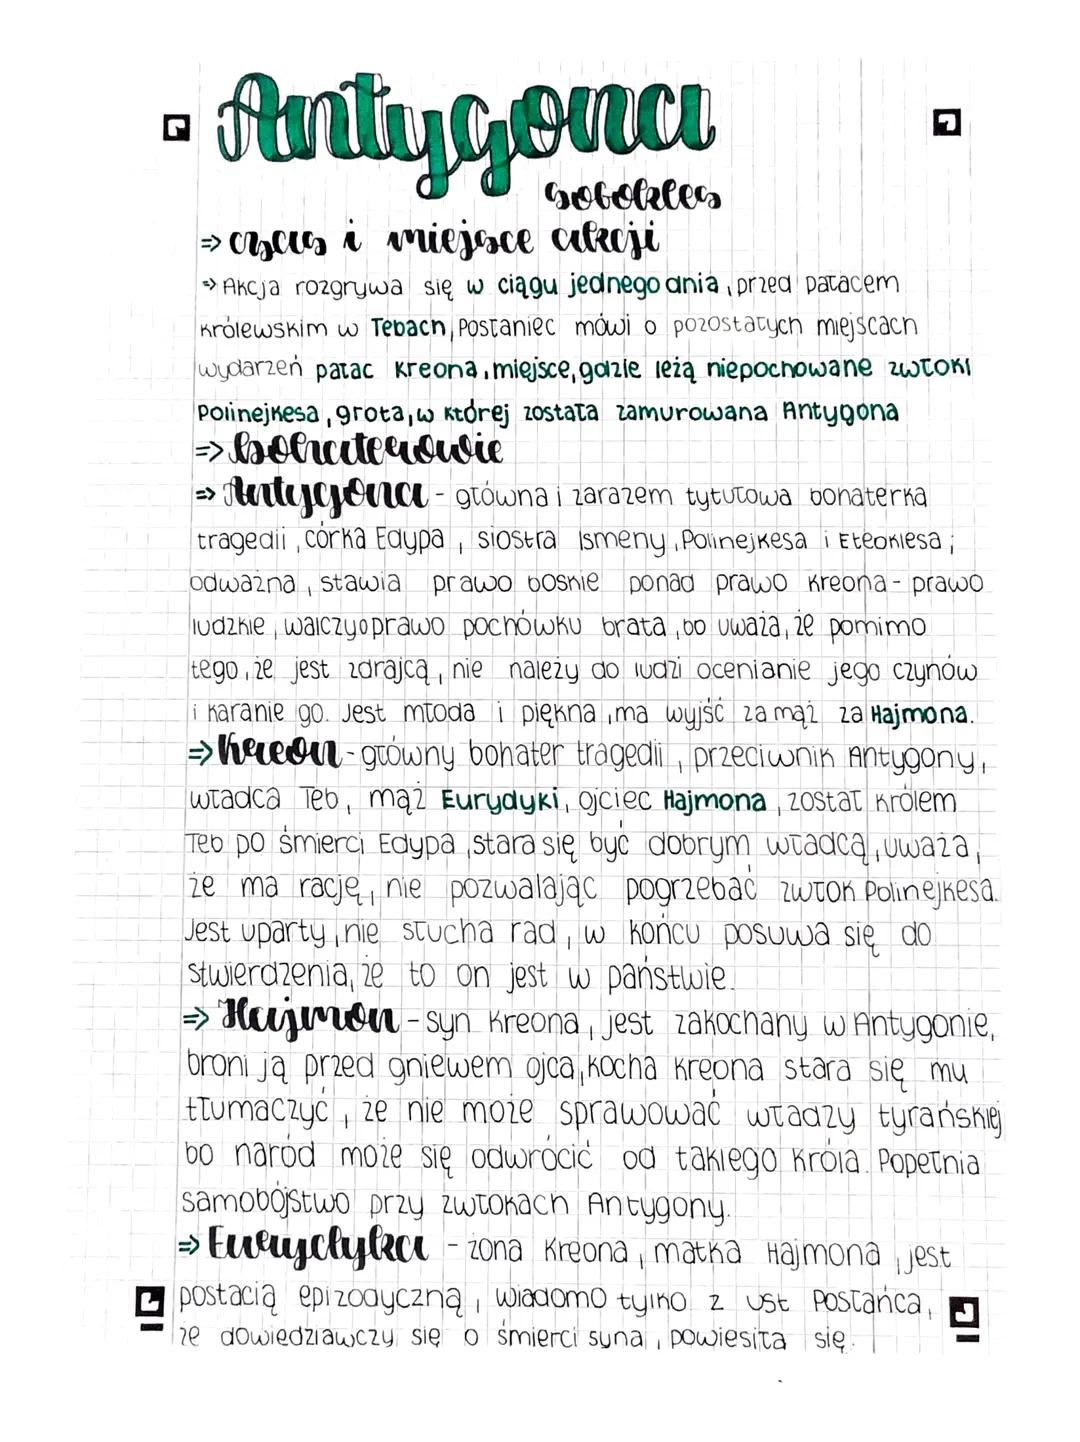 Antygona
Sofokles
⇒ czas i miejsce akcji
⇒ Akcja rozgrywa się w ciągu jednego dnia, przed pałacem
królewskim w Tebach, Posłaniec mówi o pozostałych miejscach
wydarzeń pałac Kreona, miejsce, gdzie leżą niepochowane zwłoki
Polinejkesa, grota, w której została zamurowana Antygona
⇒ bohaterowie
⇒ Antygona - główna i zarazem tytułowa bohaterka
tragedii, córka Edypa, siostra Ismeny, Polinejkesa i Eteoklesa;
odważna, stawia prawo boskie ponad prawo Kreona - prawo
ludzkie, walczy o prawo pochówku brata, bo uważa, że pomimo
tego, że jest zdrajcą, nie należy do ludzi ocenianie jego czynów
i karanie go. Jest młoda i piękna, ma wyjść za mąż za Hajmona.
⇒ Kreon - główny bohater tragedii, przeciwnik Antygony,
władca Teb, mąż Eurydyki, ojciec Hajmona, został królem
Teb po śmierci Edypa, stara się być dobrym władcą, uważa,
że ma rację, nie pozwalając pogrzebać zwłok Polinejkesa.
Jest uparty, nie słucha rad, w końcu posuwa się do
stwierdzenia, że to on jest w państwie.
⇒ Hajmon - syn Kreona, jest zakochany w Antygonie,
broni ją przed gniewem ojca, kocha Kreona stara się mu
tłumaczyć, że nie może sprawować władzy tyrańskiej
bo naród może się odwrócić od takiego króla. Popełnia
samobójstwo przy zwłokach Antygony.
⇒ Eurydyka - żona Kreona, matka Hajmona, jest
postacią epizodyczną, wiadomo tylko z ust Posłańca,
że dowiedziawczy się o śmierci syna, powiesiła się.